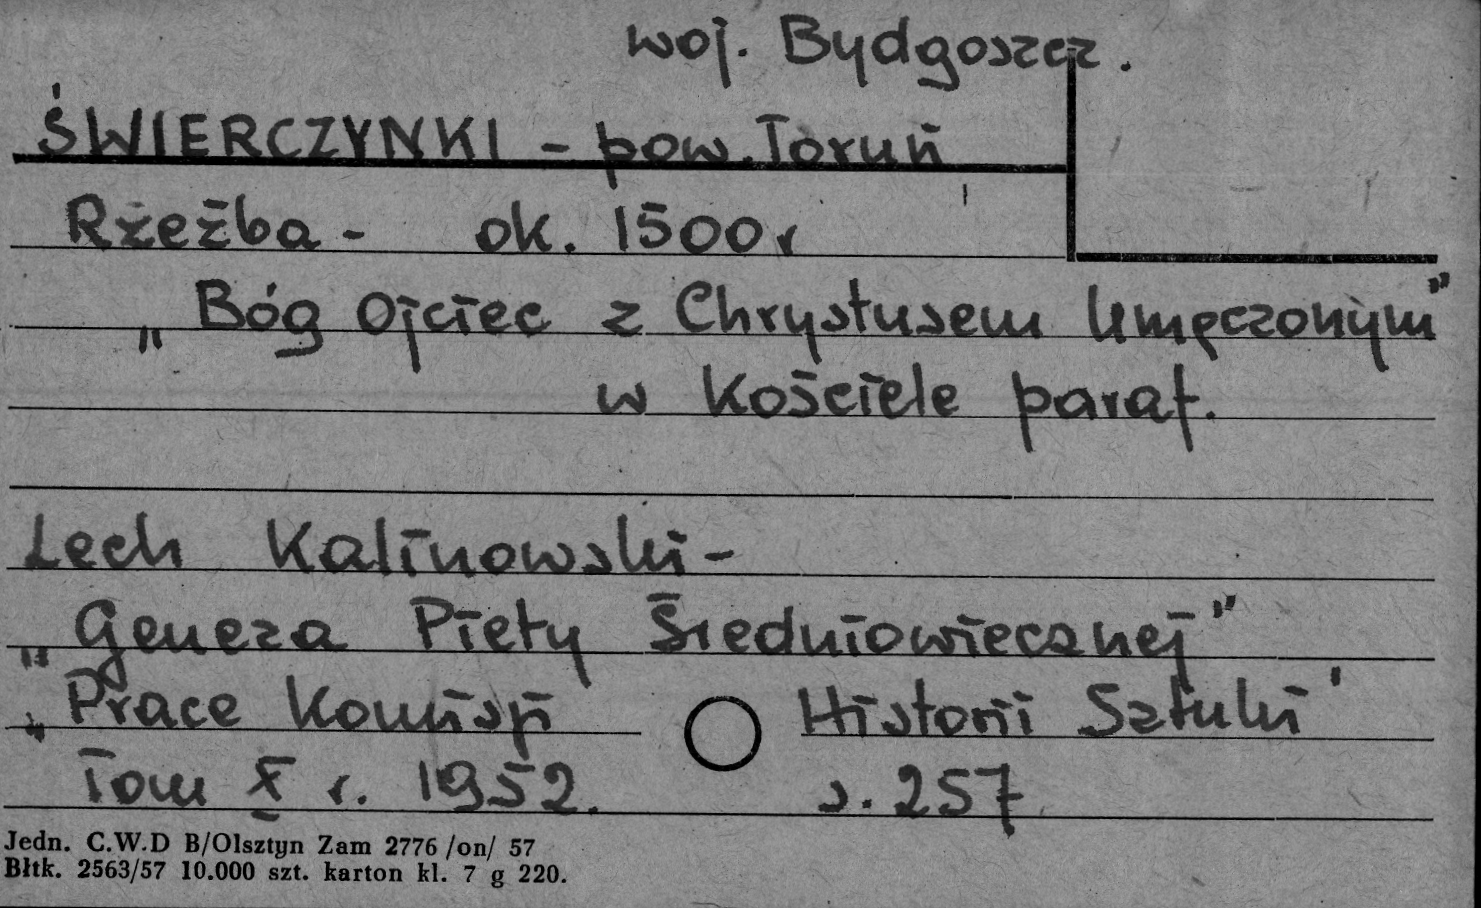 woj. Bydgoszcz.
ŚWIERCZYNKI - pow. Toruń
Rzeźba - ok. 1500 r
„Bóg Ojciec z Chrystusem Umęczonym”
w Kościele paraf.
Lech Kalinowski -
„Geneza Piety Średniowiecznej”
„Prace Komisji Historii Sztuki'
Tom X r. 1952. s. 257
Jedn. C.W.D B/Olsztyn Zam 2776 /on/ 57
Błtk. 2563/57 10.000 szt. karton kl. 7 g 220.